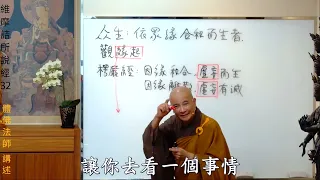 維摩詰所說經 32
體慧法師 講述
众生：依眾緣合和而生者。
觀緣起
楞嚴經：因緣和合，虛妄而生
因緣離，虛妄有滅
讓你去看一個事情